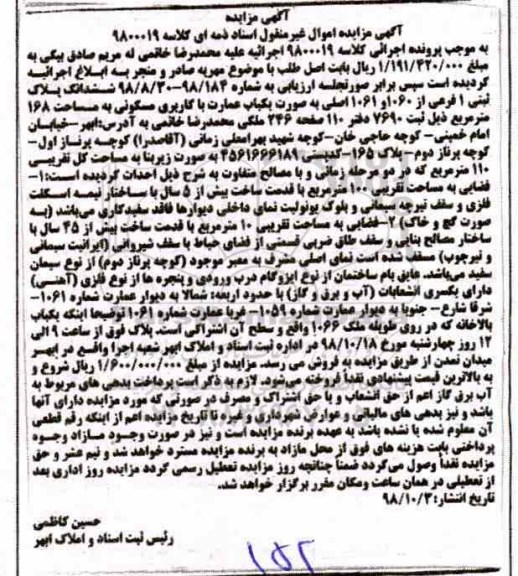 آگهی مزایده
آگهی مزایده اموال غیرمنقول اسناد ذمه ای کلاسه ۹۸۰۰۰۱۹
به موجب پرونده اجرائی کلاسه ۹۸۰۰۰۱۹ اجرائیه علیه محمدرضا خاتمی له مریم صادق بیگی به
مبلغ ۱/۱۹۱/۳۲۰/۰۰۰ ریال بابت اصل طلب با موضوع مهریه صادر و منجر به ابلاغ اجرائیه
گردیده است سپس برابر صورتجلسه ارزیابی به شماره ۹۸/۱۸۴-۹۸/۸/۳۰ ششدانگ پلاک
ثبتی ۱ فرعی از ۱۰۶۰و ۱۰۶۱ اصلی به صورت یکباب عمارت با کاربری مسکونی به مساحت ۱۶۸
مترمربع ذیل ثبت ۷۶۹۰ دفتر ۱۱۰ صفحه ۲۴۶ ملکی محمدرضا خاتمی به آدرس:ابهر-خیابان
امام خمینی- کوچه حاجی خان-کوچه شهید بهرامعلی زمانی (آقاصدرا) کوچه پرناز اول-
کوچه پرناز دوم -پلاک ۱۶۵- کدپستی ۴۵۶۱۶۶۶۱۸۹ به صورت زیربنا به مساحت کل تقریبی
۱۱۰ مترمربع که در دو مرحله زمانی و با مصالح متفاوت به شرح ذیل احداث گردیده است:۱-
فضایی به مساحت تقریبی ۱۰۰ مترمربع با قدمت ساخت بیش از ۵ سال با ساختار نیمه اسکلت
فلزی و سقف تیرچه سیمانی و بلوک یونولیت نمای داخلی دیوارها فاقد سفیدکاری می‌باشد (به
صورت گچ و خاک) ۲-فضایی به مساحت تقریبی ۱۰ مترمربع با قدمت ساخت بیش از ۴۵ سال با
ساختار مصالح بنایی و سقف طاق ضربی قسمتی از فضای حیاط با سقف شیروانی (ایرانیت سیمانی
و تیرچوب) مسقف شده است نمای اصلی مشرف به معبر موجود (کوچه پرناز دوم) از نوع سیمان
سفید می‌باشد. عایق بام ساختمان از نوع ایزوگام درب ورودی و پنجره ها از نوع فلزی (آهنی)
دارای یکسری انشعابات (آب و برق و گاز) با حدود اربعه: شمالا به دیوار عمارت شماره ۱۰۶۱-
شرقا شارع- جنوبا به دیوار عمارت شماره ۱۰۵۹- غربا عمارت شماره ۱۰۶۱ توضیحا اینکه یکباب
بالاخانه که در روی طویله ملک ۱۰۶۶ واقع و سطح آن اشتراکی است. پلاک فوق از ساعت ۹ الی
۱۲ روز چهارشنبه مورخ ۹۸/۱۰/۱۸ در اداره ثبت اسناد و املاک ابهر شعبه اجرا واقع در ابهر
میدان تمدن از طریق مزایده به فروش می رسد. مزایده از مبلغ ۱/۶۰۰/۰۰۰/۰۰۰ ریال شروع و
به بالاترین قیمت پیشنهادی نقداً فروخته می‌شود. لازم به ذکر است پرداخت بدهی های مربوط به
آب برق گاز اعم از حق انشعاب و یا حق اشتراک و مصرف در صورتی که مورد مزایده دارای آنها
باشد و نیز بدهی های مالیاتی و عوارض شهرداری و غیره تا تاریخ مزایده اعم از اینکه رقم قطعی
آن معلوم شده یا نشده باشد به عهده برنده مزایده است و نیز در صورت وجود مازاد وجوه
پرداختی بابت هزینه های فوق از محل مازاد به برنده مزایده مسترد خواهد شد و نیم عشر و حق
مزایده نقداً وصول می‌گردد ضمناً چنانچه روز مزایده تعطیل رسمی گردد مزایده روز اداری بعد
از تعطیلی در همان ساعت ومکان مقرر برگزار خواهد شد.
تاریخ انتشار:۹۸/۱۰/۳
حسین کاظمی
رئیس ثبت اسناد و املاک ابهر